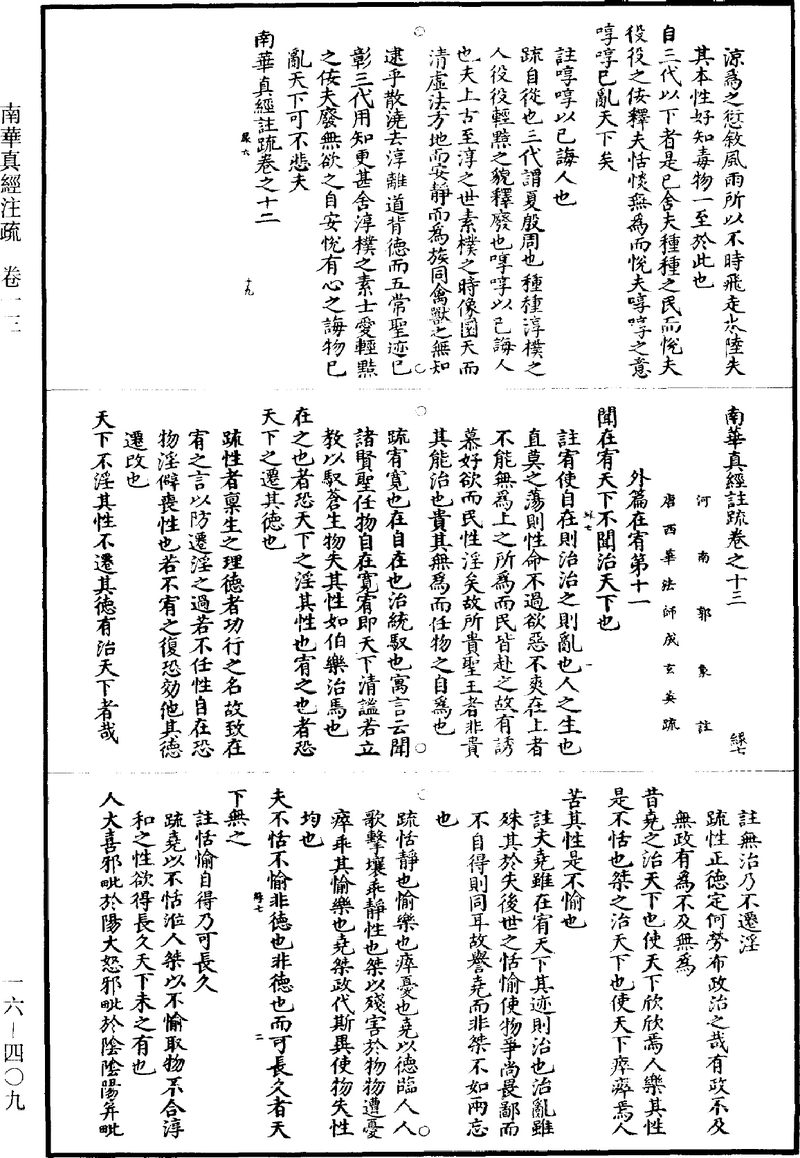 南華真經注疏　卷一三
一六—四〇九
涼爲之愆敘風雨所以不時飛走水陸失
其本性好知毒物一至於此也
自三代以下者是已舍夫種種之民而悅夫
役役之佞釋夫恬惔無爲而悅夫啍啍之意
啍啍已亂天下矣
註啍啍以己誨人也
疏自從也三代謂夏殷周也種種淳樸之
人役役輕黠之貌釋廢也啍啍以己誨人
也夫上古至淳之世素樸之時像圓天而
清虛法方地而安靜而爲族同禽獸之無知
逮乎散澆去淳離道背德而五常聖迹已
彰三代用知更甚舍淳樸之素士愛輕黠
之佞夫廢無欲之自安悅有心之誨物已
亂天下可不悲夫
南華真經註疏卷之十二
緣六
十九
南華真經註疏卷之十三
緣七
河南郭象註
唐西華法師成玄英疏
外篇在宥第十一
聞在宥天下不聞治天下也
緣七
一
註宥使自在則治治之則亂也人之生也
直莫之蕩則性命不過欲惡不爽在上者
不能無爲上之所爲而民皆赴之故有誘
慕好欲而民性淫矣故所貴聖王者非貴
其能治也貴其無爲而任物之自爲也
疏宥寬也在自在也治統馭也寓言云聞
諸賢聖任物自在寬宥即天下清謐若立
教以馭蒼生物失其性如伯樂治馬也
在之也者恐天下之淫其性也宥之也者恐
天下之遷其德也
疏性者稟生之理德者功行之名故致在
宥之言以防遷淫之過若不任性自在恐
物淫僻喪性也若不宥之復恐効他其德
遷改也
天下不淫其性不遷其德有治天下者哉
註無治乃不遷淫
疏性正德定何勞布政治之哉有政不及
無政有爲不及無爲
昔堯之治天下也使天下欣欣焉人樂其性
是不恬也桀之治天下也使天下瘁瘁焉人
苦其性是不愉也
註夫堯雖在宥天下其迹則治也治亂雖
殊其於失後世之恬愉使物爭尚畏鄙而
不自得則同耳故譽堯而非桀不如兩忘
也
疏恬靜也愉樂也瘁憂也堯以德臨人人
歌擊壤乖靜性也桀以殘害於物物遭憂
瘁乖其愉樂也堯桀政代斯異使物失性
均也
夫不恬不愉非德也非德也而可長久者天
緣七
二
下無之
註恬愉自得乃可長久
疏堯以不恬涖人桀以不愉取物不合淳
和之性欲得長久天下未之有也
人大喜邪毗於陽大怒邪毗於陰陰陽并毗